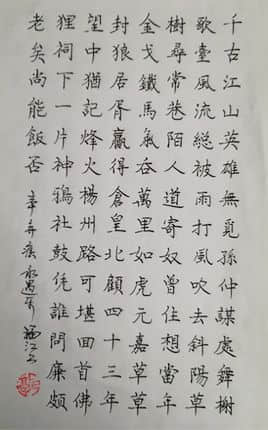 千古江山英雄無覓孫仲謀處舞榭
歌臺風流総被雨打風吹去斜陽草
樹尋常巷陌人道寄奴曾住想當年
金戈鐵馬氣吞萬里如虎元嘉草草
封狼居胥贏得倉皇北顧四十三年
望中猶記烽火楊州路可堪回首佛
狸祠下一片神鴉社鼓凭誰問廉頗
老矣尚能飯否 辛弃疾永遇樂